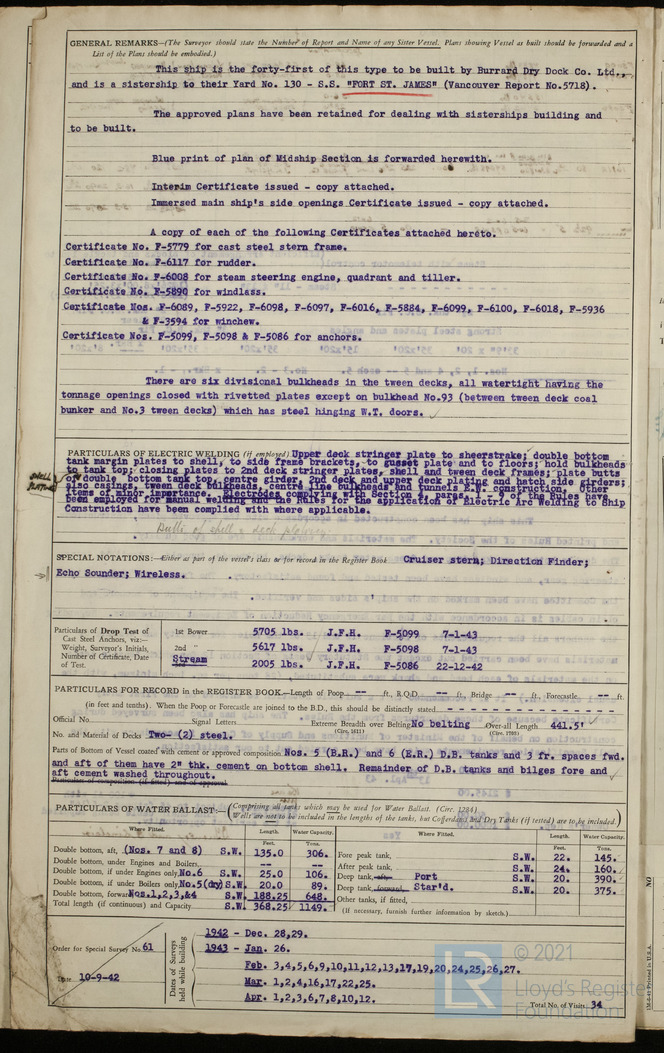 GENERAL REMARKS—(The Surveyor should state the Number of Report and Name of any Sister Vessel. Plans showing Vessel as built should be forwarded and a
List of the Plans should be embodied.)
This ship is the forty-first of this type to be built by Burrard Dry Dock Co. Ltd.,
and is a sistership to their Yard No. 130 - S.S. "FORT ST. JAMES" (Vancouver Report No.5718).
The approved plans have been retained for dealing with sisterships building and
to be built.
Blue print of plan of Midship Section is forwarded herewith.
Interim Certificate issued - copy attached.
Immersed main ship's side openings Certificate issued - copy attached.
A copy of each of the following Certificates attached hereto.
Certificate No. F-5779 for cast steel stern frame.
Certificate No. F-6117 for rudder.
Certificate No. F-6008 for steam steering engine, quadrant and tiller.
Certificate No. F-5890 for windlass.
Certificate Nos. F-6089, F-5922, F-6098, F-6097, F-6016, F-5884, F-6099, F-6100, F-6018, F-5936
& F-3594 for winchew.
Certificate Nos. F-5099, F-5098 & F-5086 for anchors.
There are six divisional bulkheads in the tween decks, all watertight having the
tonnage openings closed with rivetted plates except on bulkhead No.93 (between tween deck coal
bunker and No.3 tween decks) which has steel hinging W.T. doors.
PARTICULARS OF ELECTRIC WELDING (if employed) Upper deck stringer plate to sheerstrake; double bottom
tank margin plates to shell, to side frame brackets, to gusset plate and to floors; hold bulkheads
to tank top; closing plates to 2nd deck stringer plates, shell and tween deck frames; plate butts
SHELL PLATING
of double bottom tank top, centre girder, 2nd deck and upper deck plating and hatch side girders;
also casings, tween deck bulkheads, centre line bulkheads and tunnels E.W. construction. Other
items of minor importance. Electrodes complying with Section 4, paras. 1 - 9 of the Rules have
been employed for manual welding and the Rules for the application of Electric Arc Welding to Ship
Construction have been complied with where applicable.
Butts of shell & deck plating
SPECIAL NOTATIONS:—Either as part of the vessel's class or for record in the Register Book Cruiser stern; Direction Finder;
Echo Sounder; Wireless.
Particulars of Drop Test of
Cast Steel Anchors, viz:—
Weight, Surveyor's Initials,
Number of Certificate, Date
of Test.
1st Bower 5705 lbs. J.F.H. F-5099 7-1-43
2nd " 5617 lbs. J.F.H. F-5098 7-1-43
Stream 2005 lbs. J.F.H. F-5086 22-12-42
PARTICULARS FOR RECORD in the REGISTER BOOK.—Length of Poop -- ft., R.Q.D. -- ft., Bridge -- ft., Forecastle -- ft.
(in feet and tenths). When the Poop or Forecastle are joined to the B.D., this should be distinctly stated
Official No. Signal Letters Extreme Breadth over Belting No belting Over-all Length 441.5'
(Circ. 1611) (Circ. 1703)
No. and Material of Decks Two- (2) steel.
Parts of Bottom of Vessel coated with cement or approved composition Nos. 5 (B.R.) and 6 (E.R.) D.B. tanks and 3 fr. spaces fwd.
and aft of them have 2" thk. cement on bottom shell. Remainder of D.B. tanks and bilges fore and
aft cement washed throughout.
Particulars of composition (if fitted) and of approval
PARTICULARS OF WATER BALLAST:— (Comprising all tanks which may be used for Water Ballast. (Circ. 1284).
Wells are not to be included in the lengths of the tanks, but Cofferdams and Dry Tanks (if tested) are to be included.)
Where Fitted. Length. Water Capacity. Where Fitted. Length. Water Capacity.
Feet. Tons. Feet. Tons.
Double bottom, aft, (Nos. 7 and 8) S.W. 135.0 306. Fore peak tank, S.W. 22. 145.
Double bottom, under Engines and Boilers, -- -- After peak tank, S.W. 24. 160.
Double bottom, if under Engines only, No.6 S.W. 25.0 106. Deep tank, aft, Port S.W. 20. 390.
Double bottom, if under Boilers only, No.5(dry) S.W. 20.0 89. Deep tank, forward, Star'd. S.W. 20. 375.
Double bottom, forward, Nos.1,2,3,&4 S.W. 188.25 648. Other tanks, if fitted,
Total length (if continuous) and Capacity S.W. 368.25 1149. (If necessary, furnish further information by sketch.)
Order for Special Survey No. 61
Date 10-9-42
Dates of Surveys held while building
1942 - Dec. 28,29.
1943 - Jan. 26.
Feb. 3,4,5,6,9,10,11,12,13,17,19,20,24,25,26,27.
Mar. 1,2,4,16,17,22,25.
Apr. 1,2,3,6,7,8,10,12.
Total No. of Visits 34
LR
© 2021
Lloyd's Register
Foundation